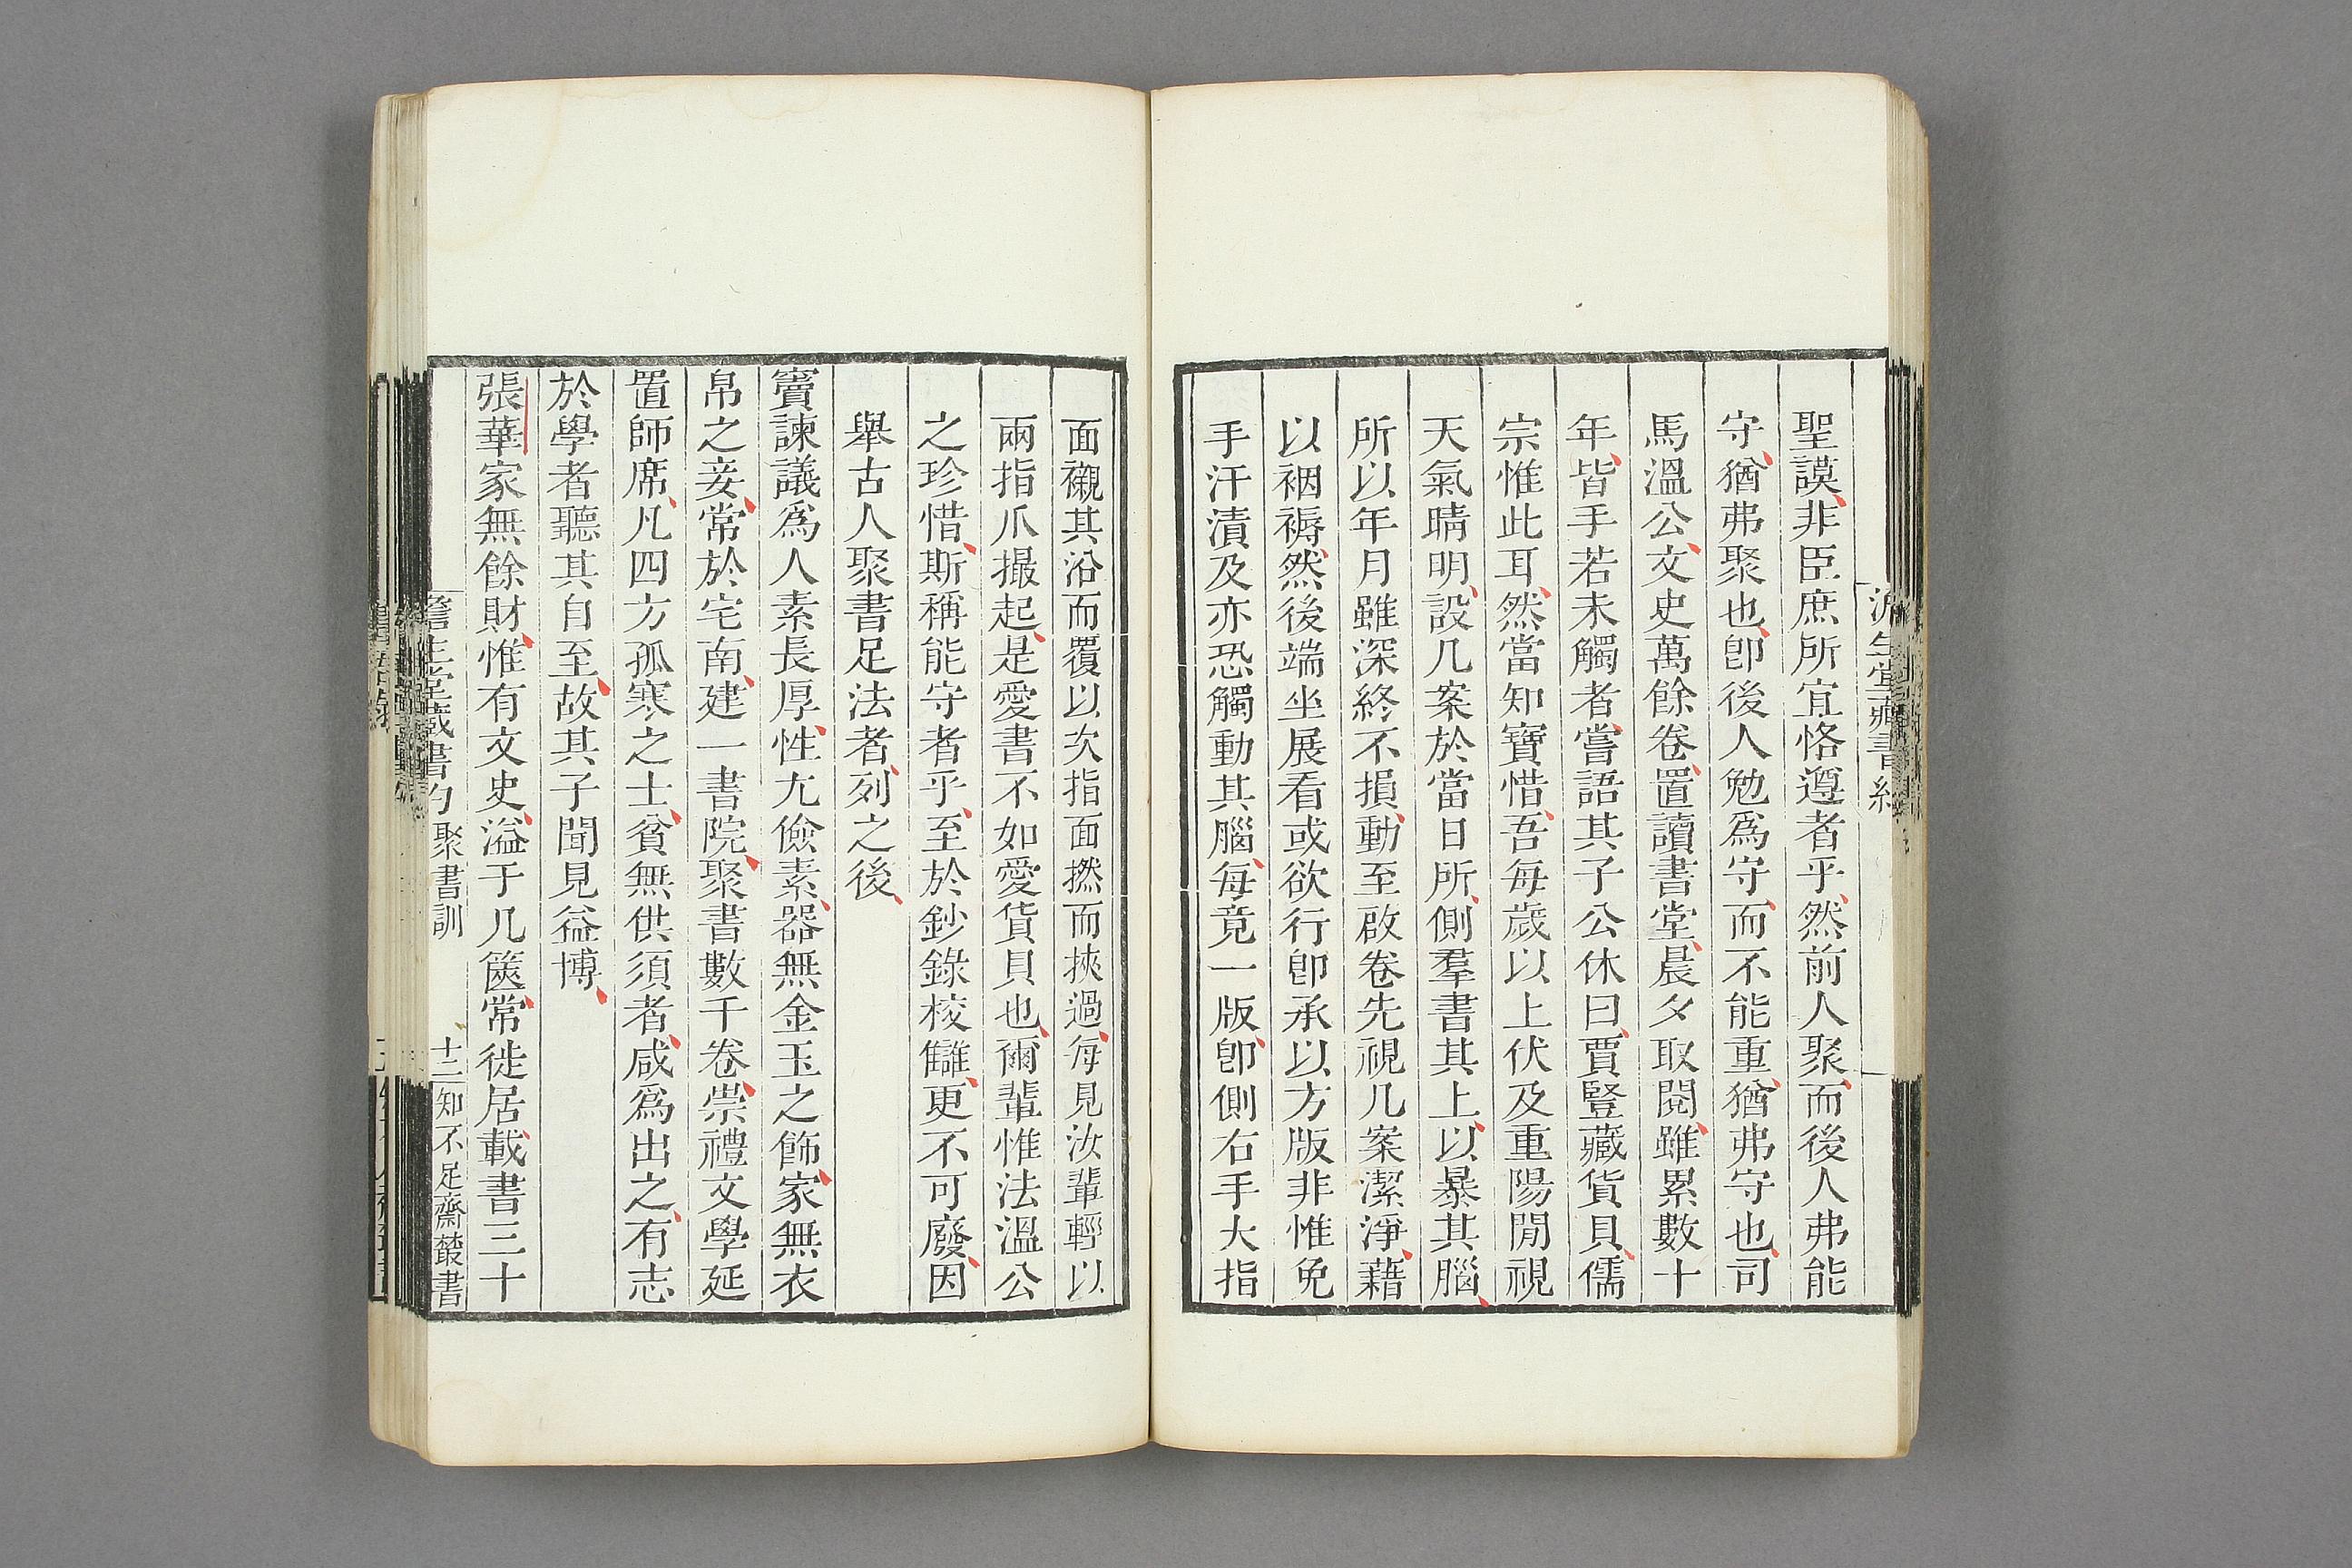 聖謨非臣庶所宜恪遵者乎然前人聚而後人弗能
守猶弗聚也卽後人勉爲守而不能重猶弗守也司
馬溫公文史萬餘卷置讀書堂晨夕取閱雖累數十
年皆手若未觸者嘗語其子公休曰賈豎藏貨貝儒
宗惟此耳然當知寶惜吾每歲以上伏及重陽閒視
天氣晴明設几案於當日所側羣書其上以暴其腦
所以年月雖深終不損動至啟卷先視几案潔淨藉
以裀褥然後端坐展看或欲行卽承以方版非惟免
手汗漬及亦恐觸動其腦每竟一版卽側右手大指
面襯其沿而覆以次指面撚而挾過每見汝輩輕以
兩指爪撮起是愛書不如愛貨貝也爾輩惟法溫公
之珍惜斯稱能守者乎至於鈔錄校讎更不可廢因
舉古人聚書足法者列之後
竇諫議爲人素長厚性尤儉素器無金玉之飾家無衣
帛之妾常於宅南建一書院聚書數千卷崇禮文學延
置師席凡四方孤寒之士貧無供須者咸爲出之有志
於學者聽其自至故其子聞見益博
張華家無餘財惟有文史溢于几篋常徙居載書三十
澹生堂藏書約 聚書訓 十二 知不足齋叢書